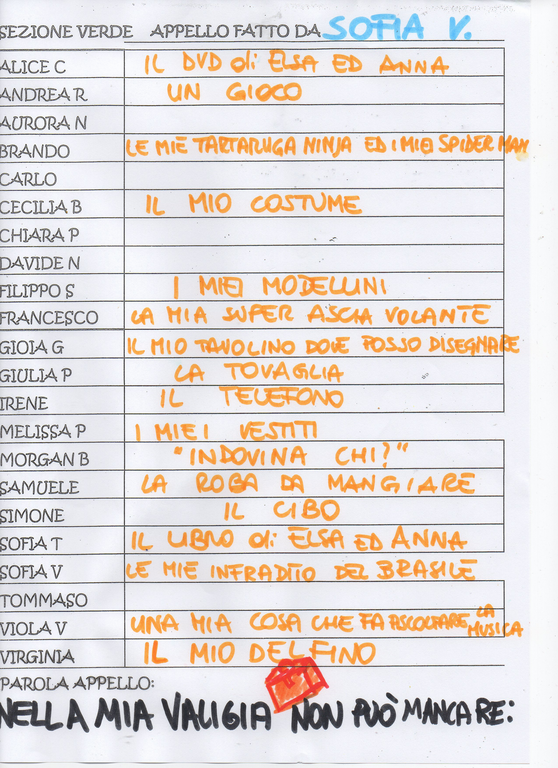 SEZIONE VERDE APPELLO FATTO DA SOFIA V.
ALICE C IL DVD di ELSA ED ANNA
ANDREA R UN GIOCO
AURORA N
BRANDO LE MIE TARTARUGA NINJA ED I MIEI SPIDER MAN
CARLO
CECILIA B IL MIO COSTUME
CHIARA P
DAVIDE N
FILIPPO S I MIEI MODELLINI
FRANCESCO LA MIA SUPER ASCIA VOLANTE
GIOIA G IL MIO TAVOLINO DOVE POSSO DISEGNARE
GIULIA P LA TOVAGLIA
IRENE IL TELEFONO
MELISSA P I MIEI VESTITI
MORGAN B "INDOVINA CHI?"
SAMUELE LA ROBA DA MANGIARE
SIMONE IL CIBO
SOFIA T IL LIBRO di ELSA ED ANNA
SOFIA V LE MIE INFRADITO DEL BRASILE
TOMMASO
VIOLA V UNA MIA COSA CHE FA ASCOLTARE LA MUSICA
VIRGINIA IL MIO DELFINO
PAROLA APPELLO:
NELLA MIA VALIGIA NON PUÒ MANCARE: